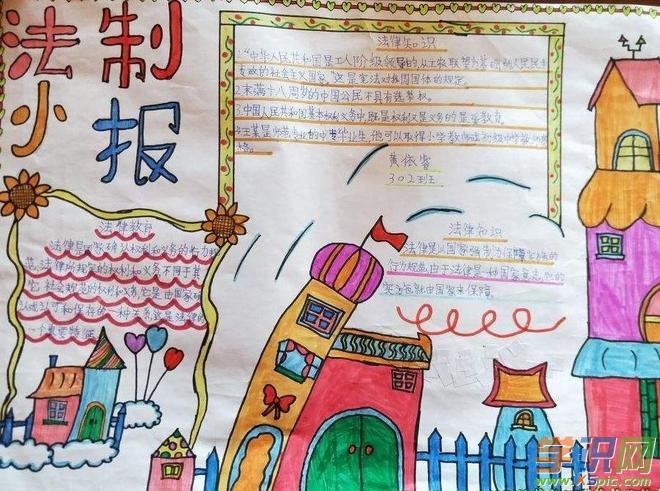 法制
小报
法律知识
1."中华人民共和国是工人阶级领导的以工农联盟为基础的人民民主
专政的社会主义国家,"这是宪法对我国国体的规定。
2.未满十八周岁的中国公民不具有选举权。
3.中国人民共和国基本权利义务中,既是权利又是义务的是受教育。
4.王某是师范专业的中专毕业生,他可以取得小学教师或初级中学教师
格。
黄依睿
302班
法律教育
法律是国家确认权利和义务的行为规
范,法律所规定的权利和义务不同于其
它社会规范的权利和义务,它是由国家确
认或认可和保存的一种关系,这是法律的
一个重要特征
法律知识
法律是以国家强制力保障实施的
行为规范,由于法律是一种国家意志,他的
实施就由国家来保障。
学识网
www.xspic.com